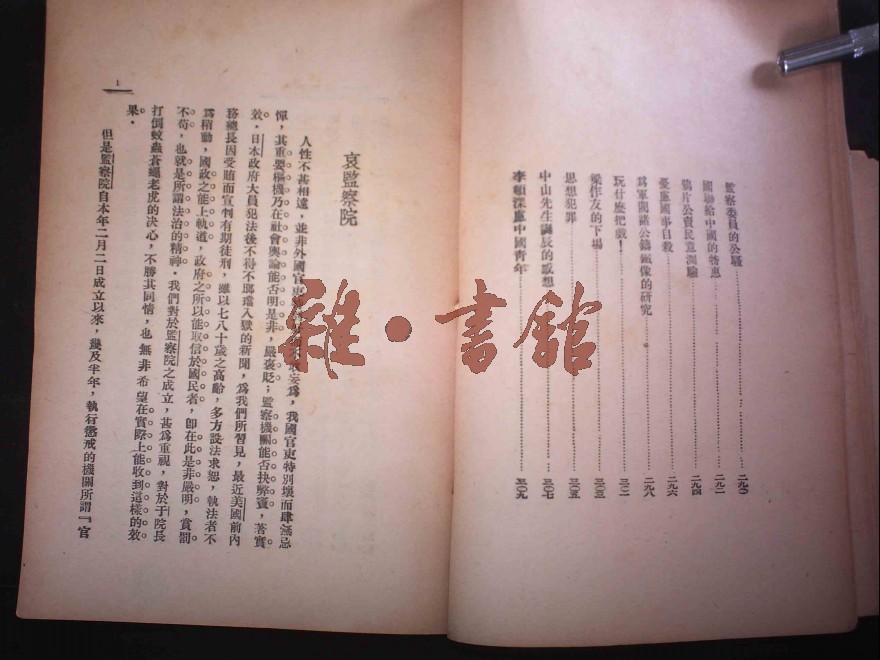 監察委員的公騷……二九〇
國聯給中國的特惠……二九二
鴉片公賣民意測驗……二九四
憂慮國事自殺……二九六
為軍閥諸公鑄鐵像的研究……二九八
玩什麼把戲！……三〇一
梁作友的下場……三〇三
思想犯罪……三〇五
中山先生誕辰的感想……三〇七
李頓深慮中國青年……三〇九
哀監察院
人性不甚相遠，並非外國官吏妄為，我國官吏特別壞而肆無忌
憚，其重要樞機乃在社會輿論能否明是非，嚴褒貶；監察機關能否抉弊竇，著實
效。日本政府大員犯法後不得不瑯璫入獄的新聞，為我們所習見，最近美國前內
務總長因受賄而宣判有期徒刑，雖以七八十歲之高齡，多方設法求恕，執法者不
為稍動，國政之能上軌道，政府之所以能取信於國民者，卽在此是非嚴明，賞罰
不苟，也就是所謂法治的精神。我們對於監察院之成立，甚為重視，對於于院長
打倒蚊蟲蒼蠅老虎的決心，不勝其同情，也無非希望在實際上能收到這樣的效
果。
但是監察院自本年二月二日成立以來，幾及半年，執行懲戒的機關所謂『官
1
雜·書館